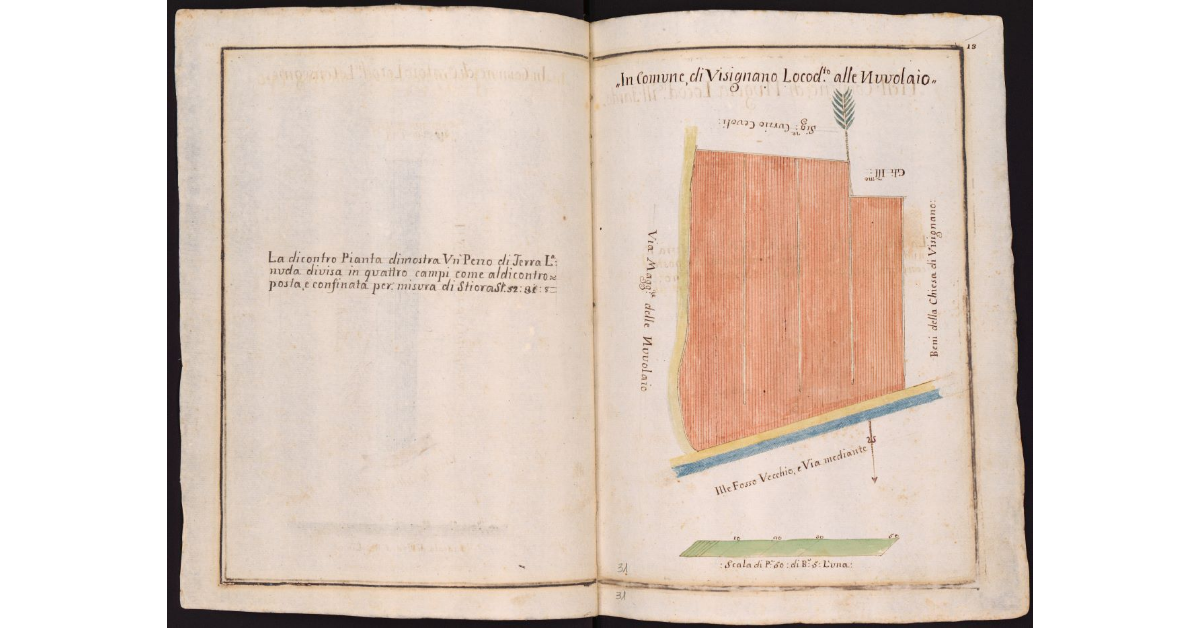 La dicontro Pianta dimostra Un Pezzo di Terra La:
nuda divisa in quattro campi come aldicontro
posta, e confinata per misura di Stiora St. 52: 31: 5
18
„In Comune, di Visignano Locod.to alle Nuvolaio„
Sig.re Curzio Cevoli:
Gli Ill.mi
Via Magg.re delle Nuvolaio
Beni della Chiesa di Visignano:
25
Ille Fosso Vecchio, e Via mediante
:Scala di P.e 60: di B.a 5: L'una:
31
31